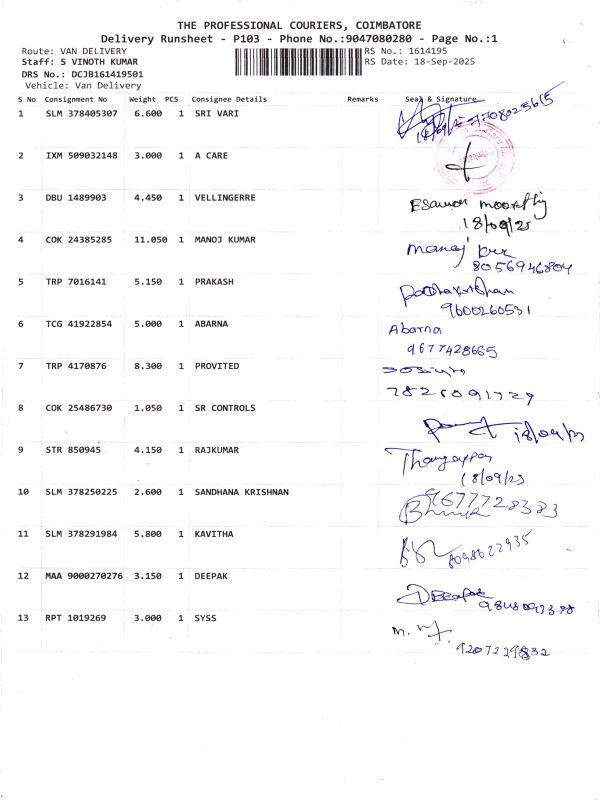 THE PROFESSIONAL COURIERS, COIMBATORE
Delivery Runsheet - P103 - Phone No.:9047080280 - Page No.:1
Route: VAN DELIVERY RS No.: 1614195
Staff: S VINOTH KUMAR RS Date: 18-Sep-2025
DRS No.: DCJB161419501
Vehicle: Van Delivery
S No Consignment No Weight PCS Consignee Details Remarks Seal & Signature
1 SLM 378405307 6.600 1 SRI VARI
2 IXM 509032148 3.000 1 A CARE
3 DBU 1489903 4.450 1 VELLINGERRE
18/09/25
4 COK 24385285 11.050 1 MANOJ KUMAR Manoj
8056946804
5 TRP 7016141 5.150 1 PRAKASH
9600260531
6 TCG 41922854 5.000 1 ABARNA Abarna
9677428665
7 TRP 4170876 8.300 1 PROVITED
7826091729
8 COK 25486730 1.050 1 SR CONTROLS
9 STR 850945 4.150 1 RAJKUMAR
18/09/25
10 SLM 378250225 2.600 1 SANDHANA KRISHNAN 9677728383
11 SLM 378291984 5.800 1 KAVITHA
8098622935
12 MAA 9000270276 3.150 1 DEEPAK Deepak
13 RPT 1019269 3.000 1 SYSS
9207229832